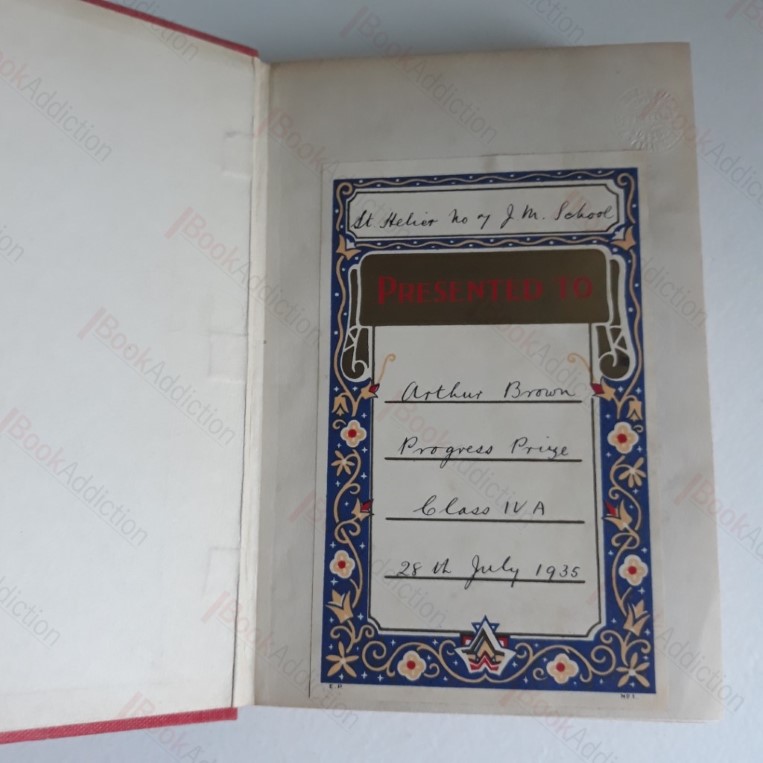 St Helier No 7 J.M. School
PRESENTED TO
Arthur Brown
Progress Prize
Class IV A
28 th July 1935
E.P.
BookAddiction